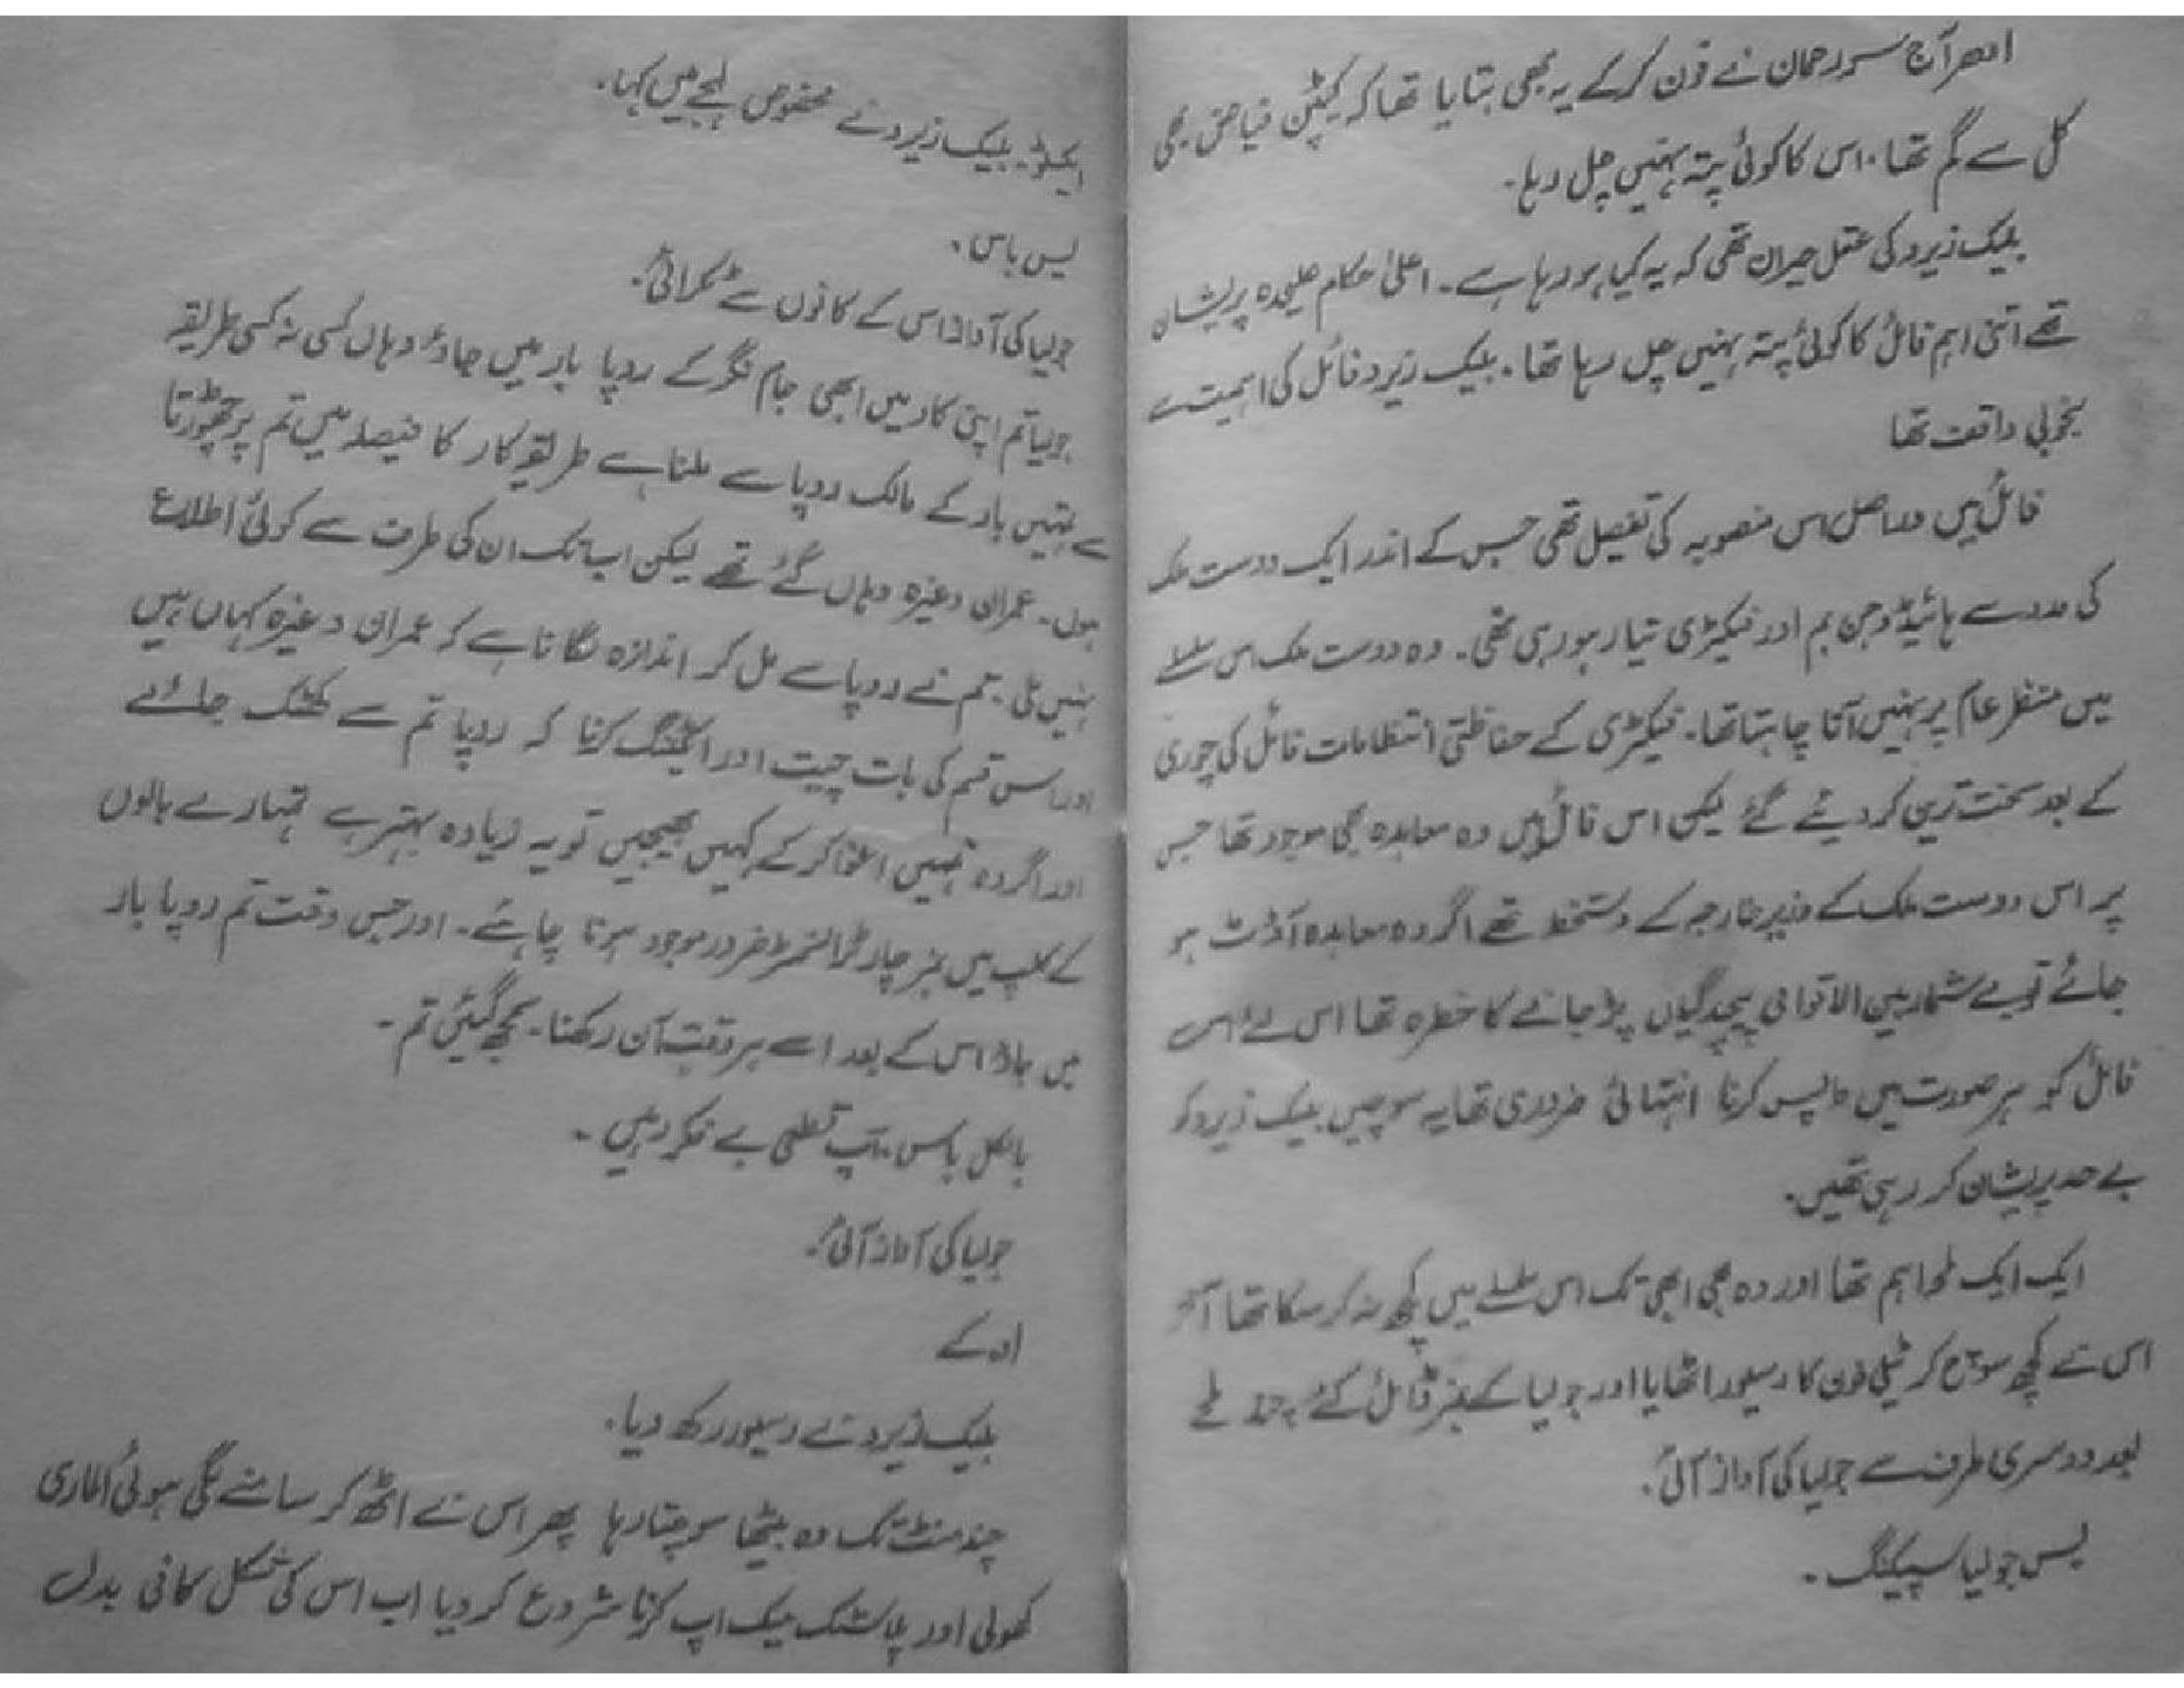 ادھر آج سر رحمان نے فون کر کے یہ بھی بتایا تھا کہ کیپٹن فیاض بھی
کل سے گم تھا۔ اس کا کوئی پتہ نہیں چل رہا۔
بلیک زیرو کی عقل حیران تھی کہ یہ کیا ہو رہا ہے۔ اعلیٰ حکام علیحدہ پریشان
تھے اتنی اہم فائل کا کوئی پتہ نہیں چل رہا تھا۔ بلیک زیرو فائل کی اہمیت سے
بخوبی واقف تھا
فائل میں دراصل اس منصوبہ کی تفصیل تھی جس کے اندر ایک دوست ملک
کی مدد سے ہائیڈروجن بم اور فیکٹری تیار ہو رہی تھی۔ وہ دوست ملک اس سلسلے
میں منظر عام پر نہیں آنا چاہتا تھا۔ فیکٹری کے حفاظتی انتظامات فائل کی چوری
کے بعد سخت ترین کر دیئے گئے لیکن اس فائل میں وہ معاہدہ بھی موجود تھا جس
پر اس دوست ملک کے وزیر خارجہ کے دستخط تھے اگر وہ معاہدہ آؤٹ ہو
جائے تو بے شمار بین الاقوامی پیچیدگیاں پڑ جانے کا خطرہ تھا اس لئے اس
فائل کو ہر صورت میں واپس کرنا انتہائی ضروری تھا یہ سوچیں بلیک زیرو کو
بے حد پریشان کر رہی تھیں۔
ایک ایک لمحہ اہم تھا اور وہ بھی ابھی تک اس سلسلے میں کچھ نہ کر سکا تھا آخر
اس نے کچھ سوچ کر ٹیلی فون کا رسیور اٹھایا اور جولیا کے نمبر ڈائل کئے۔ چند لمحے
بعد دوسری طرف سے جولیا کی آواز آئی۔
یس جولیا سپیکنگ۔
ایکسٹو۔ بلیک زیرو نے مخصوص لہجے میں کہا۔
یس باس۔
جولیا کی آواز اس کے کانوں سے ٹکرائی۔
جولیا تم اپنی کار میں ابھی جام نگر کے روپا بار میں جاؤ وہاں کسی نہ کسی طریقے
سے تمہیں بار کے مالک روپا سے ملنا ہے طریقہ کار کا فیصلہ میں تم پر چھوڑتا
ہوں۔ عمران وغیرہ وہاں گئے تھے لیکن اب تک ان کی طرف سے کوئی اطلاع
نہیں ملی۔ تم نے روپا سے مل کر اندازہ لگانا ہے کہ عمران وغیرہ کہاں ہیں
اور اس قسم کی بات چیت اور ایکٹنگ کرنا کہ روپا تم سے کھٹک جائے
اور اگر وہ تمہیں اغوا کر کے کہیں بھیجیں تو یہ زیادہ بہتر ہے تمہارے بالوں
کے کلپ میں نمبر چار ٹرانسمیٹر ضرور موجود ہونا چاہئے۔ اور جس وقت تم روپا بار
میں جاؤ اس کے بعد اسے ہر وقت آن رکھنا۔ سمجھ گئیں تم۔
بالکل باس۔ آپ قطعی بے فکر رہیں۔
جولیا کی آواز آئی۔
او کے
بلیک زیرو نے رسیور رکھ دیا۔
چند منٹ تک وہ بیٹھا سوچتا رہا پھر اس نے اٹھ کر سامنے لگی ہوئی الماری
کھولی اور پلاسٹک میک اپ کرنا شروع کر دیا اب اس کی شکل کافی بدل